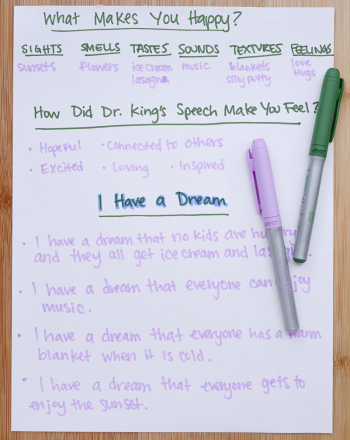 What Makes You Happy?
SIGHTS SMELLS TASTES SOUNDS TEXTURES FEELINGS
sunsets flowers ice cream music blankets love
lasagna silly putty hugs
How Did Dr. King's Speech Make You Feel?
• Hopeful • Connected to others
• Excited • Loving • Inspired
I Have a Dream
• I have a dream that no kids are hungry
and they all get ice cream and lasagna.
• I have a dream that everyone can enjoy
music.
• I have a dream that everyone has a warm
blanket when it is cold.
• I have a dream that everyone gets to
enjoy the sunset.